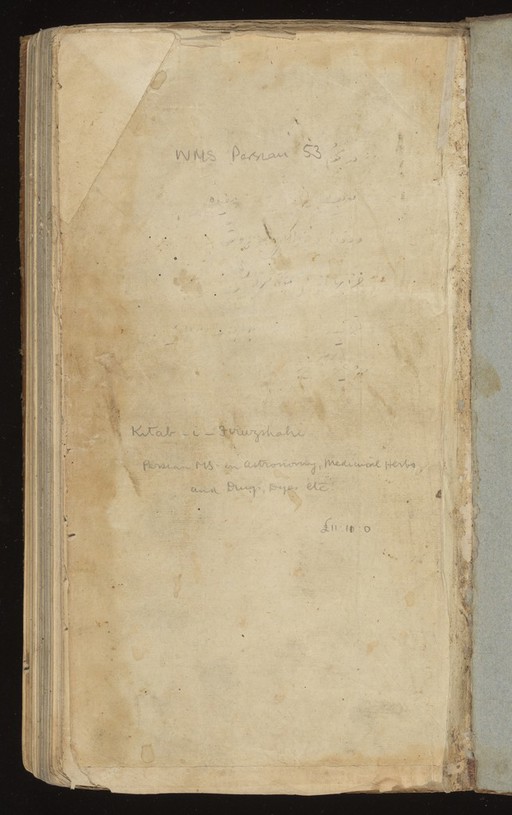 WMS Persian 53
Kitab-i-Firuzshahi
Persian MS. on Astronomy, Medicinal Herbs,
and Drugs, Dyes etc.
£11.11.0